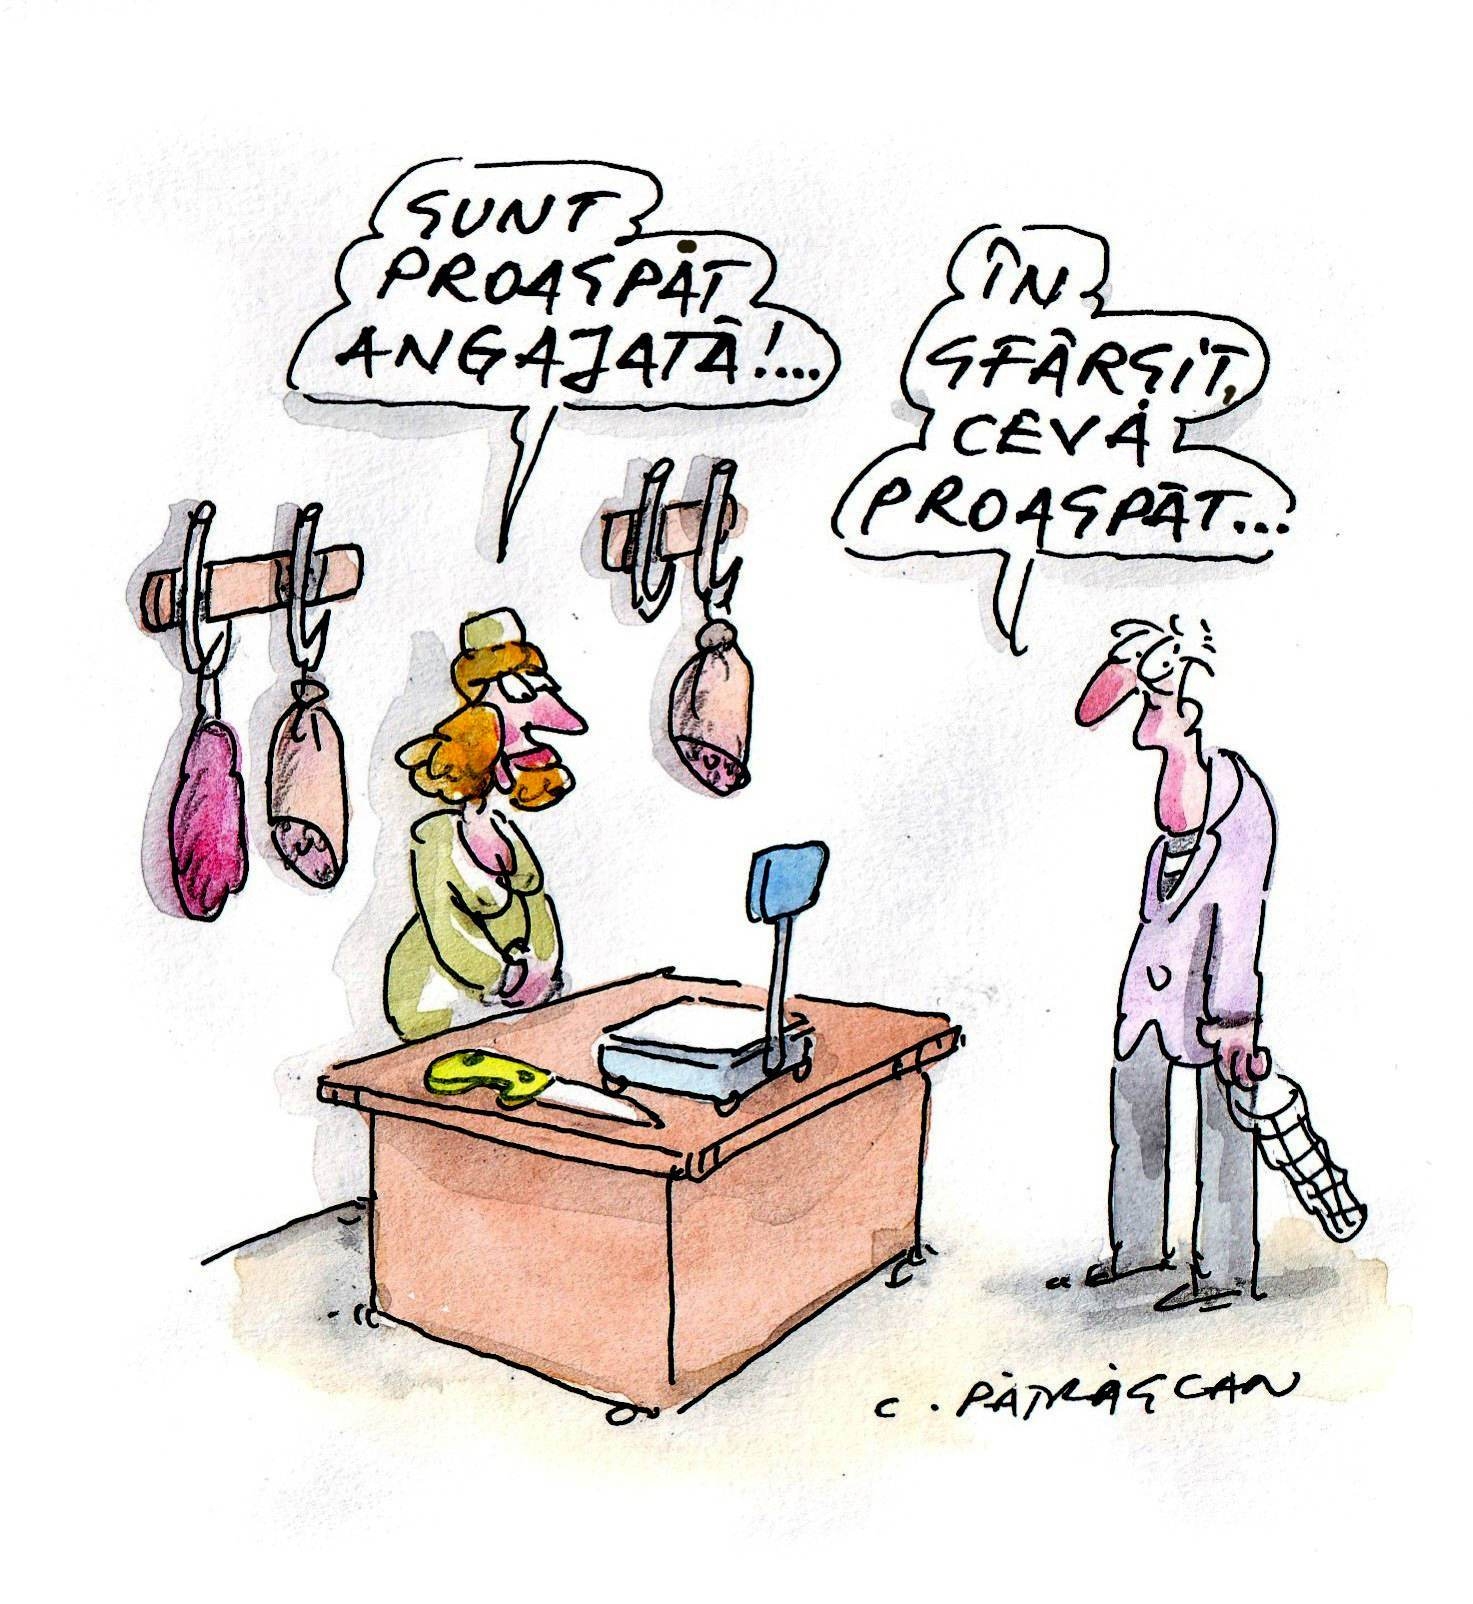 SUNT
PROASPĂT
ANGAJATĂ!....
ÎN
SFÂRȘIT,
CEVA
PROASPĂT...
C. PĂTRĂȘCAN